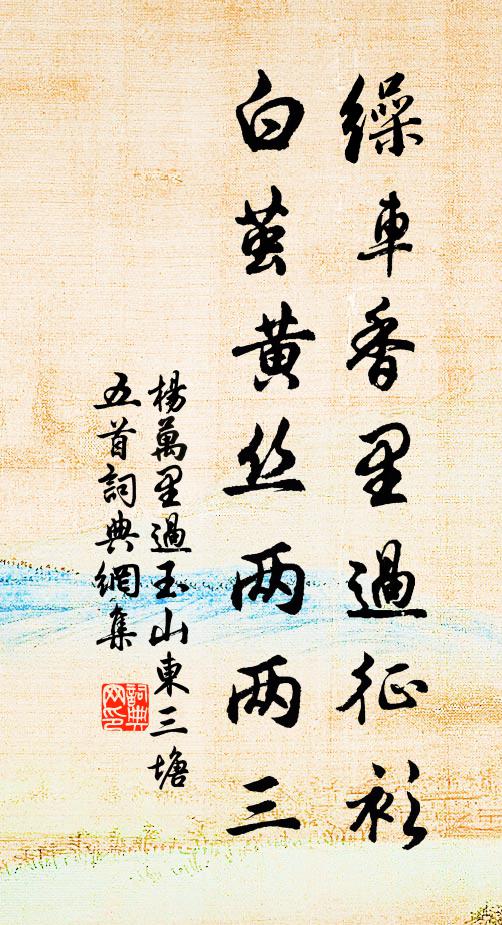 繰車香里過征衫
白茧黄丝两两三
楊萬里過玉山東三塘
五首詞典網集
詞典
网印